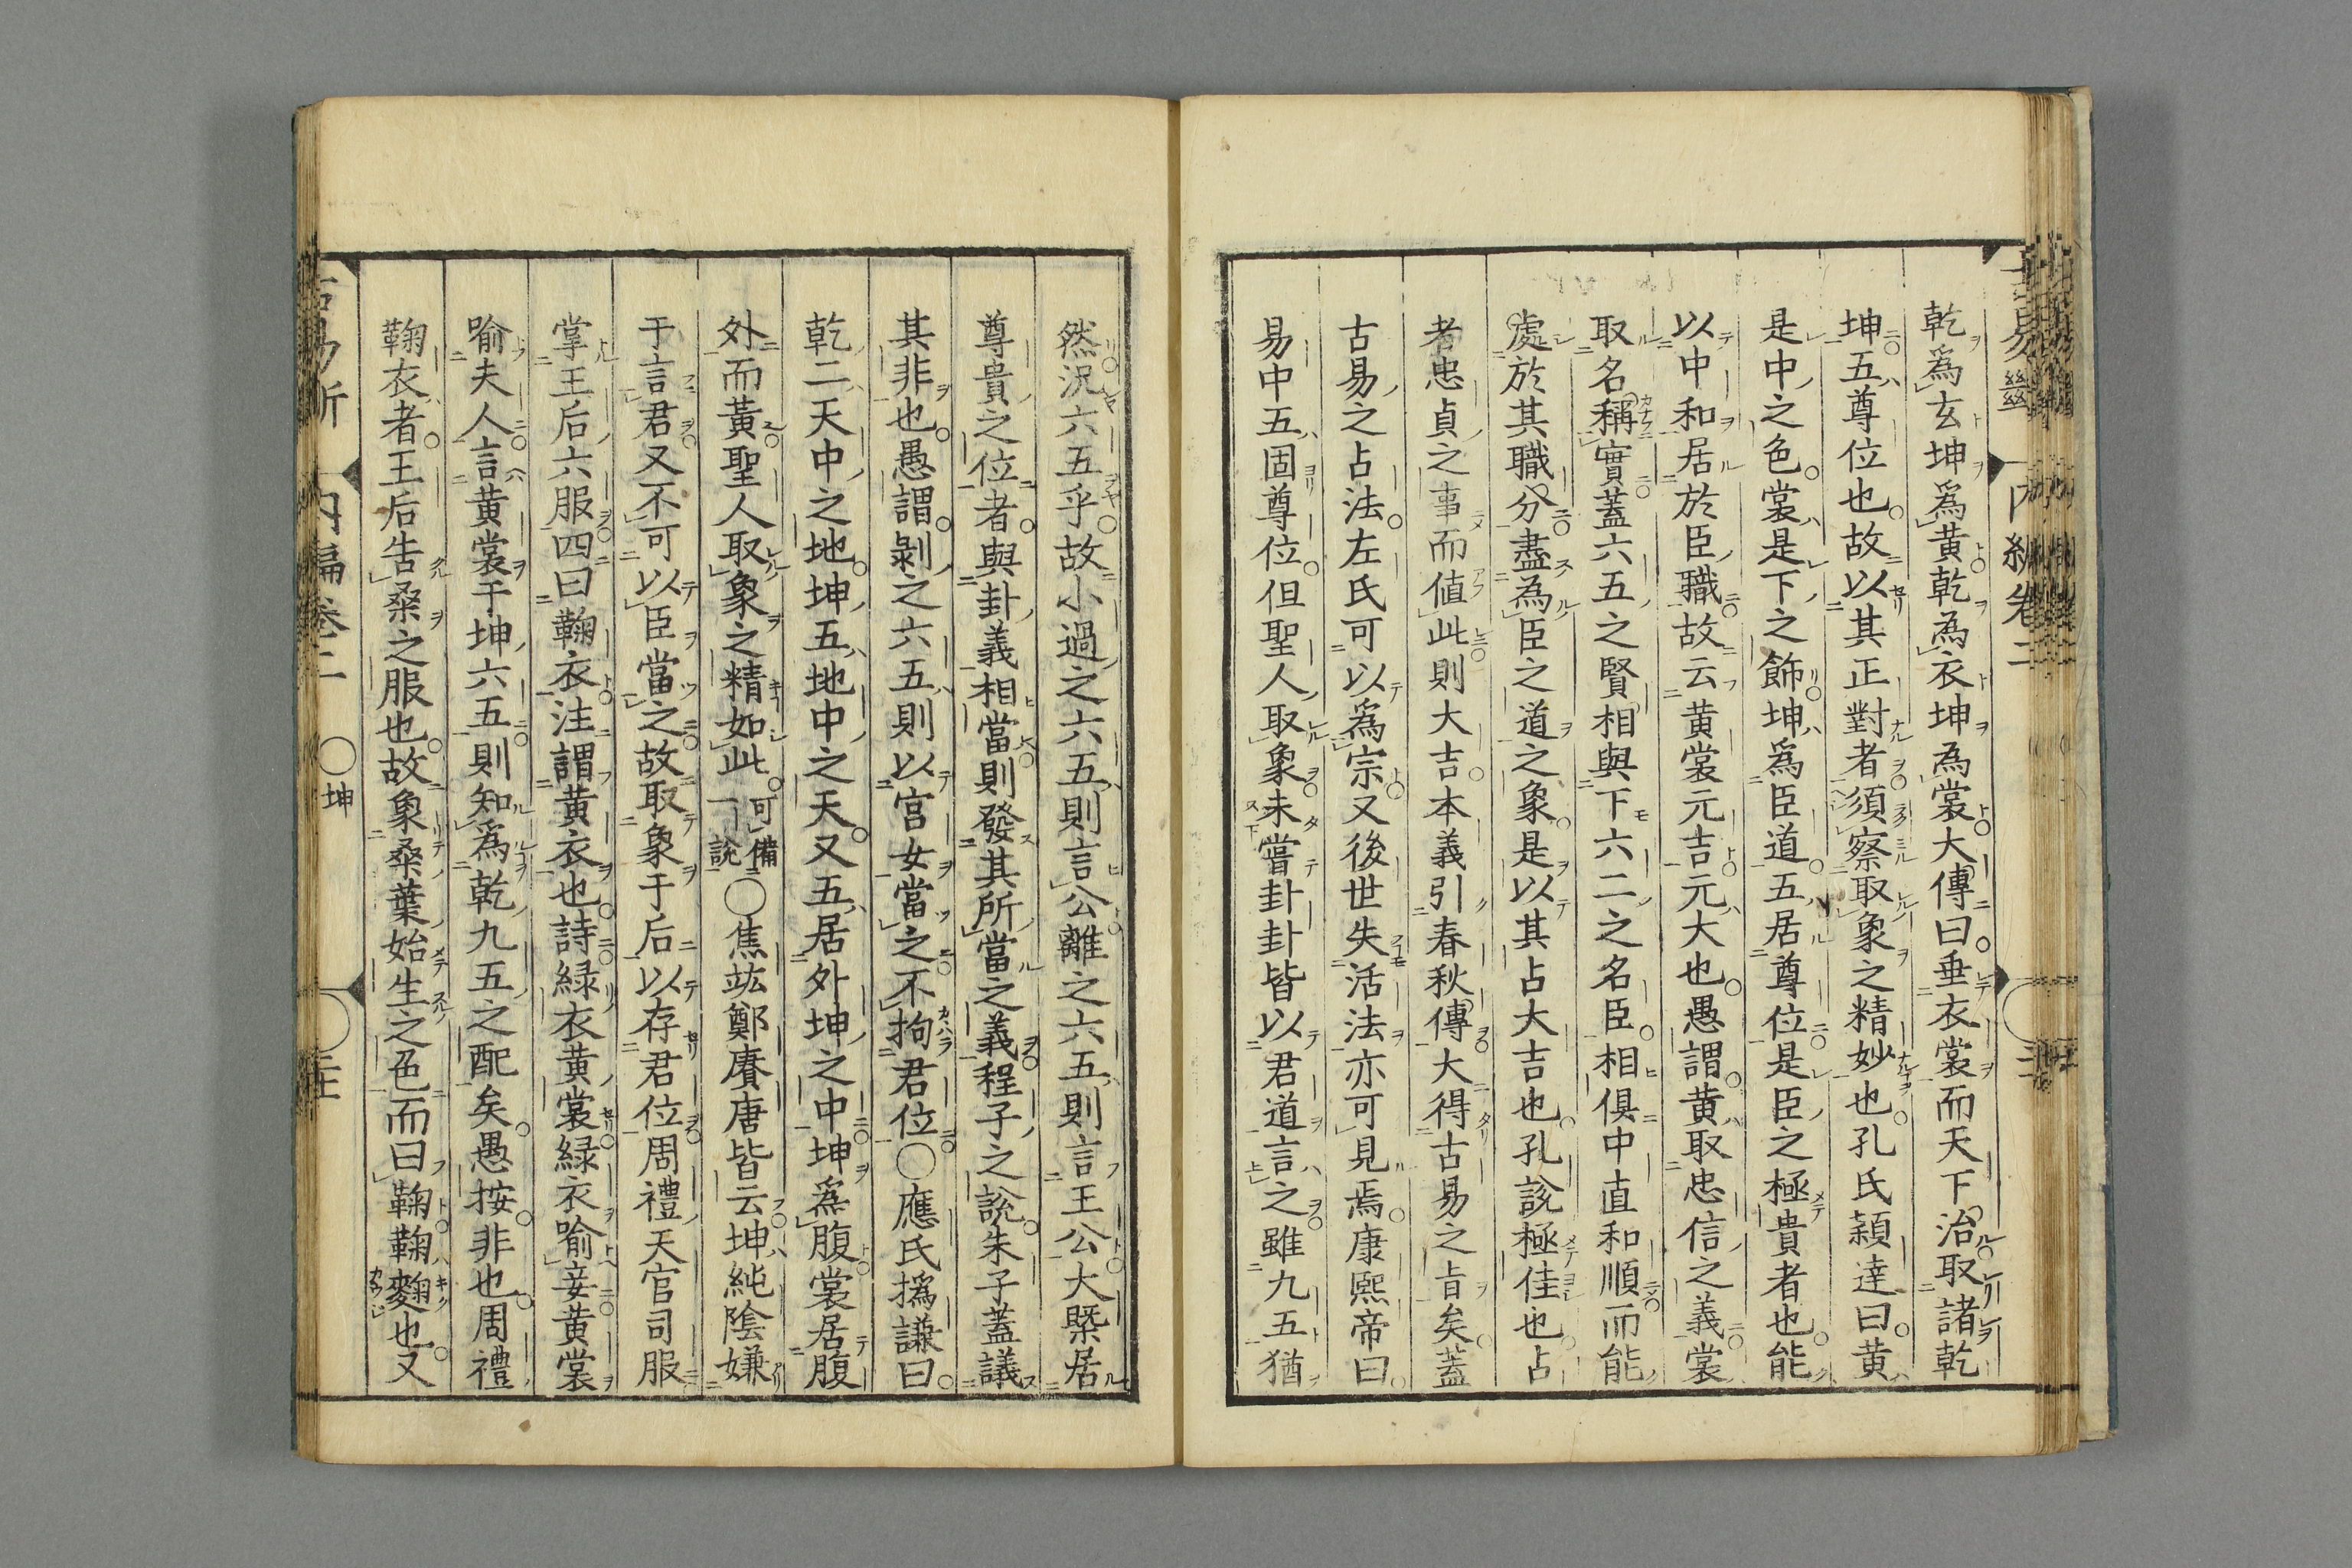 乾爲玄坤爲黃乾為衣坤為裳大傳曰垂衣裳而天下治取諸乾
坤五尊位也故以其正對者須察取象之精妙也孔氏穎達曰黄
是中之色裳是下之飾坤爲臣道五居尊位是臣之極貴者也能
以中和居於臣職故云黄裳元吉元大也愚謂黄取忠信之義裳
取名稱實蓋六五之賢相與下六二之名臣相俱中直和順而能
處於其職分盡為臣之道之象是以其占大吉也孔說極佳也占
者忠貞之事而値此則大吉本義引春秋傳大得古易之旨矣蓋
古易之占法左氏可以爲宗又後世失活法亦可見焉康熙帝曰
易中五固尊位但聖人取象未嘗卦卦皆以君道言之雖九五猶
然況六五乎故小過之六五則言公離之六五則言王公大槩居
尊貴之位者與卦義相當則發其所當之義程子之說朱子蓋議
其非也愚謂剝之六五則以宮女當之不拘君位○應氏撝謙曰
乾二天中之地坤五地中之天又五居外坤之中坤爲腹裳居腹
外而黃聖人取象之精如此可備一說○焦竑鄭賡唐皆云坤純陰嫌
于言君又不可以臣當之故取象于后以存君位周禮天官司服
掌王后六服四曰鞠衣注謂黄衣也詩緑衣黄裳緑衣喻妾黄裳
喻夫人言黄裳于坤六五則知爲乾九五之配矣愚按非也周禮
鞠衣者王后告桑之服也故象桑葉始生之色而曰鞠鞠麴也又
內編卷二
坤